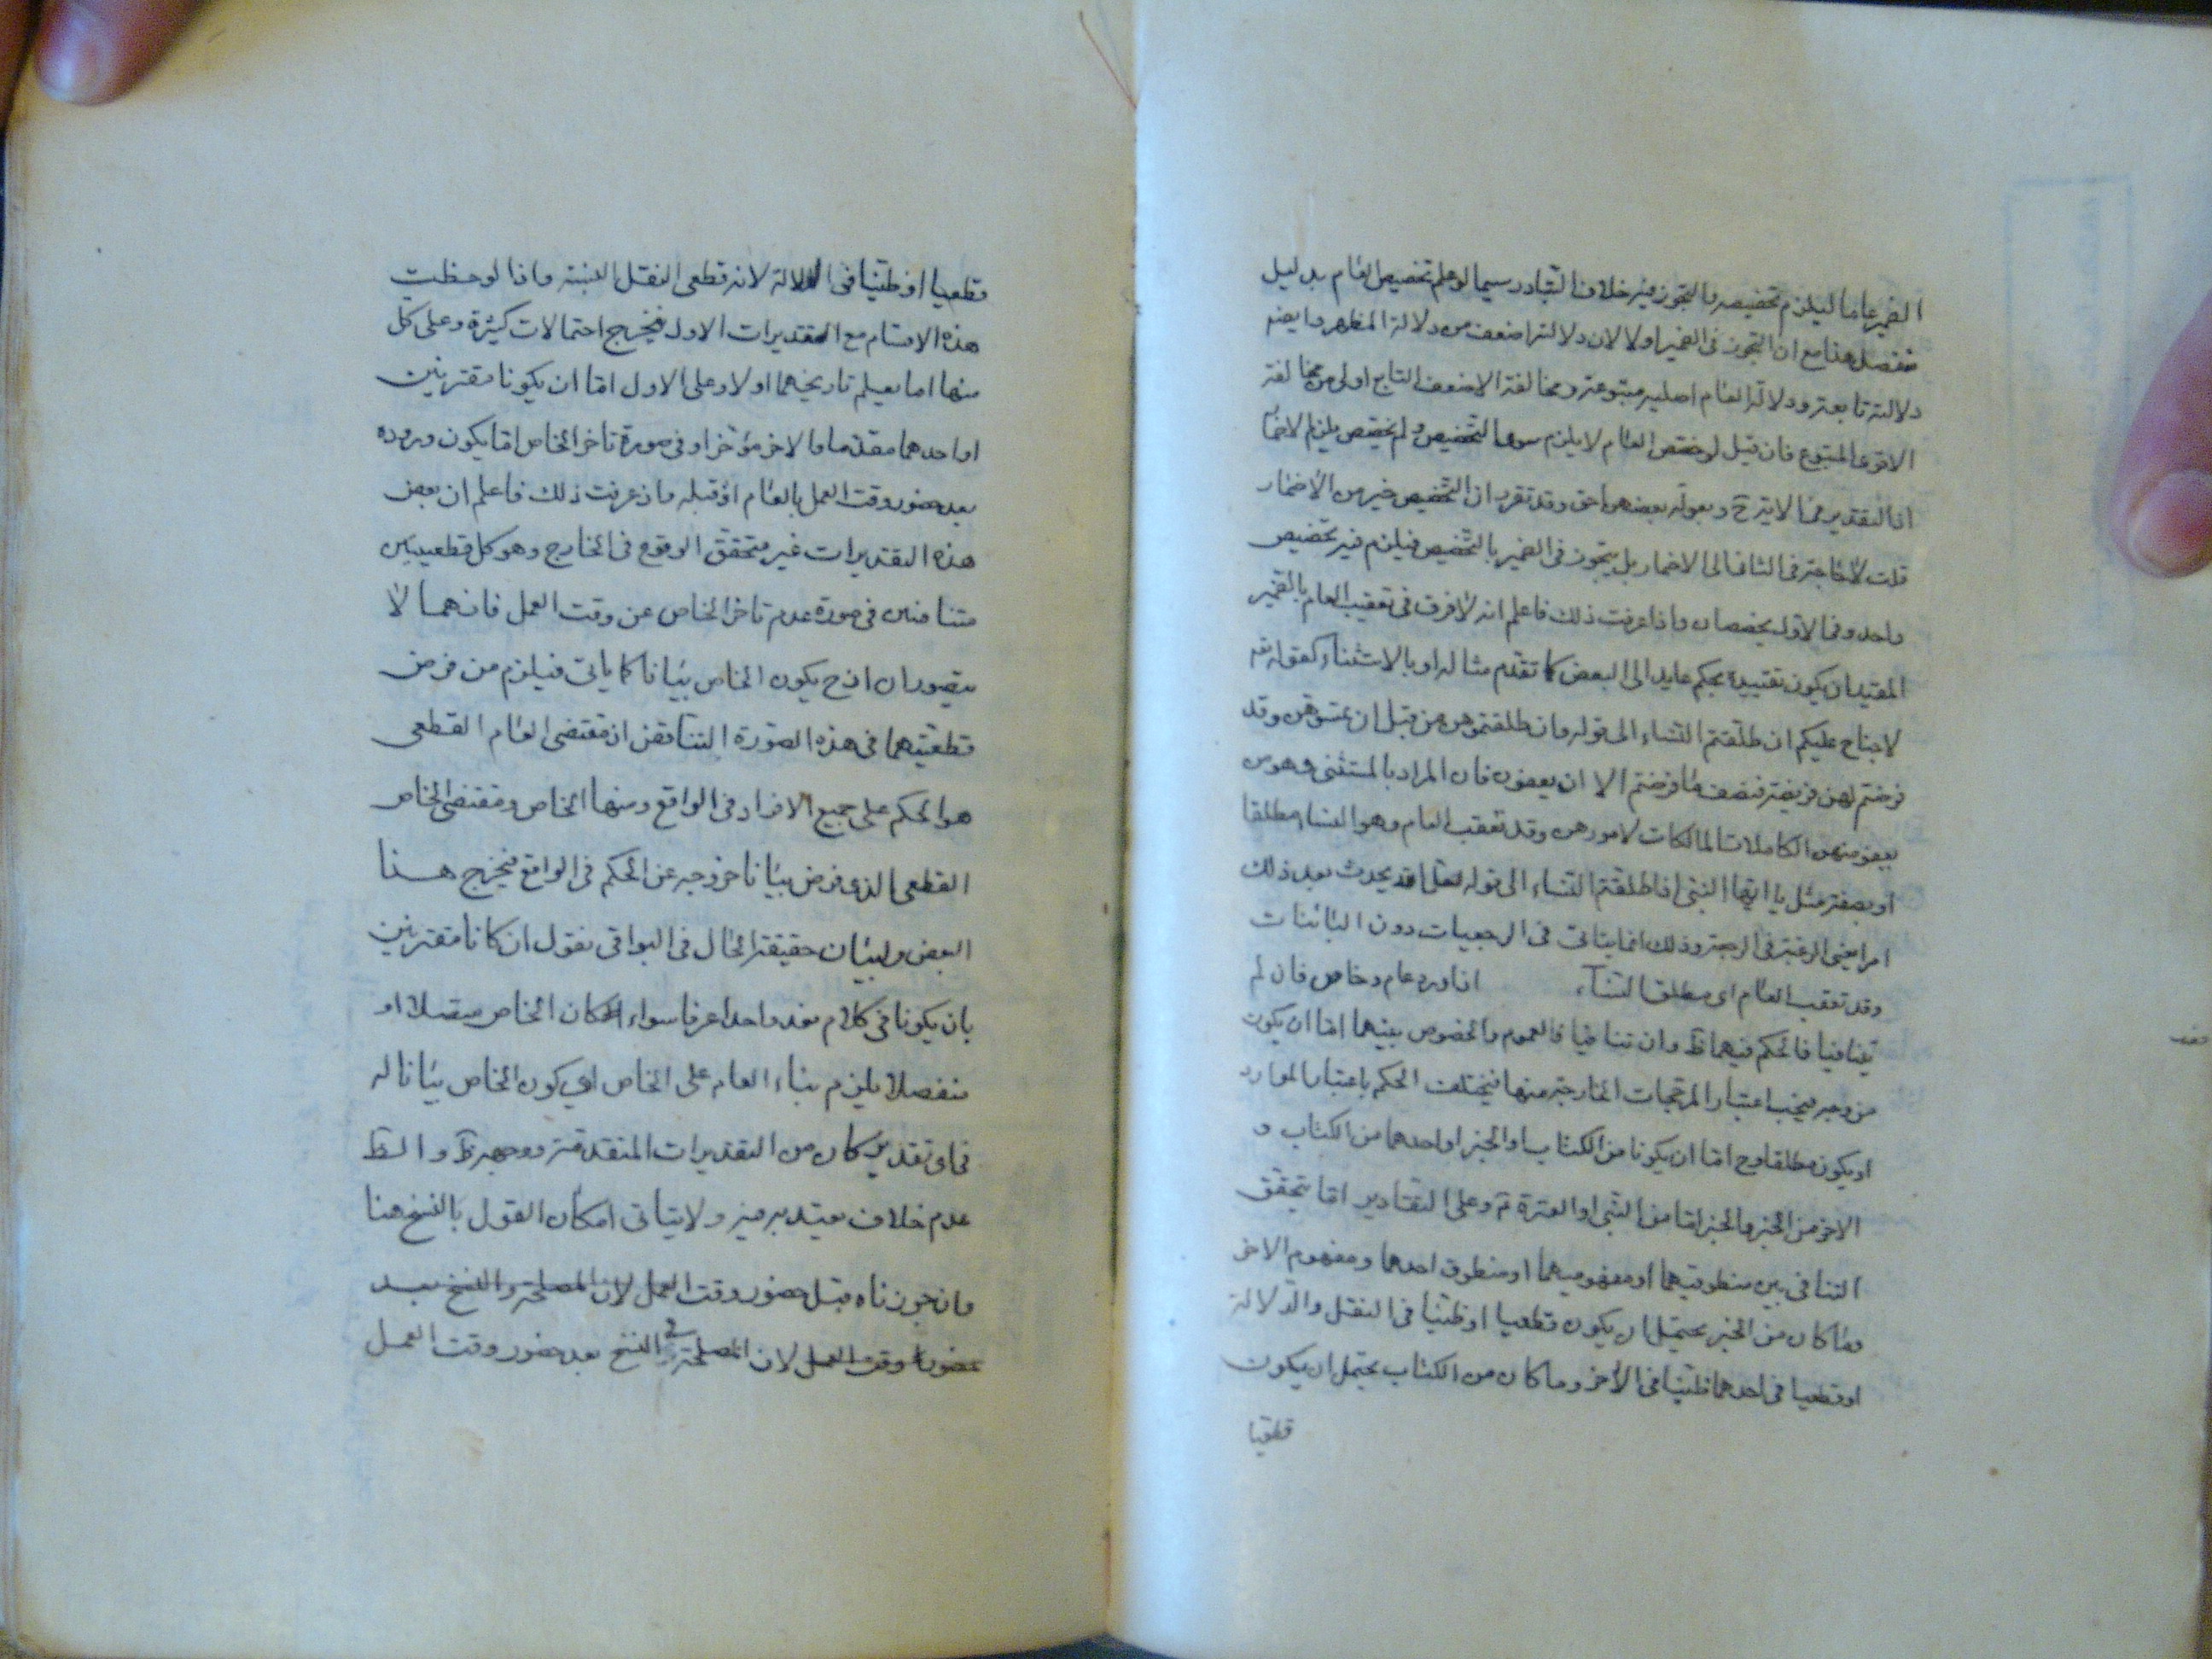 الضمير عاما ليلزم تخصيصه بالتجوز فيه خلاف المتبادر سيما لو علم تخصيص العام بدليل
منفصل هذا مع ان التجوز فى الضمير اولا لان دلالته اضعف من دلالة المظهر وايضه
دلالته تابعة ودلالة العام اصلية متبوعة ومخالفة الاضعف التابع اولى من مخالفة
الاقوى المتبوع فان قيل لو خصص العام لا يلزم سوى التخصيص ولم يخصص يلزم الاضمار
اذ التقدير مما لا يترح وبعولة بعضهن احق وقد تقرر ان التخصيص خير من الاضمار
قلت لا حاجة فى الثانى الى الاضمار بل يتجوز فى الضمير بالتخصيص فيلزم فيه تخصيص
واحد وفى الاول يخصصان واذا عرفت ذلك فاعلم انه لا فرق فى تعقيب العام بالضمير
المقيد ان يكون تقييده بحكم عايد الى البعض كما تقدم مثاله او بالاستثناء كقوله تعه
لا جناح عليكم ان طلقتم النساء الى قوله وان طلقتموهن من قبل ان تمسوهن وقد
فرضتم لهن فريضة فنصف ما فرضتم الا ان يعفون فان المراد بالمستثنى وهو من
يعفو منهن الكاملات المالكات لامورهن وقد تعقب العام وهو النساء مطلقا
او بصفة مثل يا ايها النبى اذا طلقتم النساء الى قوله لعل الله يحدث بعد ذلك
امرا يعنى الرغبة فى الرجعة وذلك انما يتاتى فى الرجعيات دون البائنات
وقد تعقب العام اى مطلق النساء اذا ورد عام وخاص فان لم
يتنافيا فالحكم فيهما ظ وان تنافيا فالعموم والخصوص بينهما اما ان يكون
من وجه فيجب اعتبار المرجحات الخارجة منها فيختلف الحكم باعتبار الموارد
او يكون مطلقا وح اما ان يكونا من الكتاب او الخبر او احدهما من الكتاب و
الاخر من الخبر والخبر اما من النبى او العترة ثم وعلى التقادير اما يتحقق
التنافى بين منطوقيهما او مفهوميهما او منطوق احدهما ومفهوم الاخر
وما كان من الخبر يحتمل ان يكون قطعيا او ظنيا فى النقل والدلالة
او قطعيا فى احدهما ظنيا فى الاخر وما كان من الكتاب يحتمل ان يكون
قطعيا
قطعيا او ظنيا فى الدلالة لانه قطعى النقل البتة واذا لوحظت
هذه الاقسام مع التقديرات الاول فيخرج احتمالات كثيرة وعلى كل
منها اما يعلم تاريخهما اولا وعلى الاول اما ان يكونا مقترنين
او احدهما مقدما والاخر مؤخرا وفى صورة تاخر الخاص اما يكون وروده
بعد حضور وقت العمل بالعام او قبله واذ عرفت ذلك فاعلم ان بعض
هذه التقديرات غير متحقق الوقوع فى الخارج وهو كل قطعيين
متنافيين فى صورة عدم تاخر الخاص عن وقت العمل فانهما لا
يتصوران اذ ح يكون الخاص بيانا كما ياتى فيلزم من فرض
قطعيتهما فى هذه الصورة التناقض اذ مقتضى العام القطعى
هو الحكم على جميع الافراد فى الواقع ومنها الخاص ومقتضى الخاص
القطعى الذى فرض بيانا خروجه عن الحكم فى الواقع فيخرج هذا
البعض ولبيان حقيقة الحال فى البواقى نقول ان كانا مقترنين
بان يكونا فى كلام يعد واحدا عرفا سواء كان الخاص متصلا او
منفصلا يلزم بناء العام على الخاص اى كون الخاص بيانا له
فى اى تقدير كان من التقديرات المتقدمة ووجهه ظ والظ
عدم خلاف يعتد به فيه ولا يتاتى امكان القول بالنسخ هنا
وان جوزناه قبل حضور وقت العمل لان المصلحة والنسخ بعد
حضور وقت العمل لان المصلحة فى النسخ بعد حضور وقت العمل